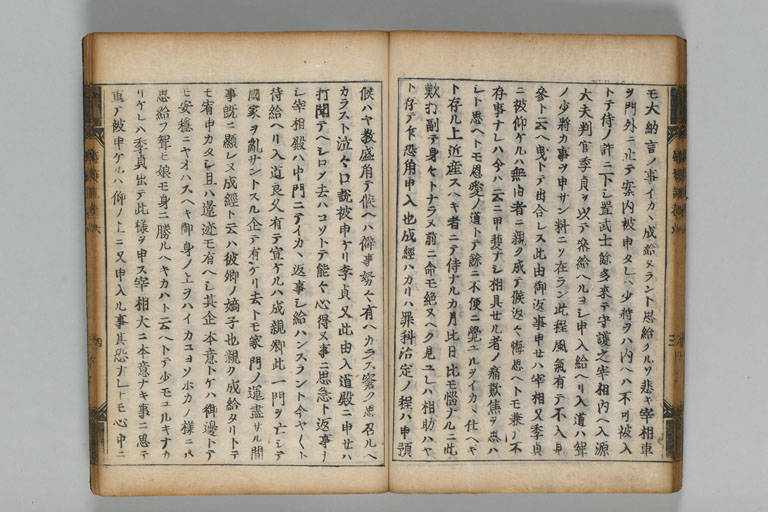 モ大納言ノ事イカヽ成給ヌラント思給クルソ悲キ宰相車
ヲ門外ニ止テ案内被申タレハ少将ヲハ内ヘハ不可被入
トテ侍ノ許ニ下シ置武士餘多來テ守護之宰相内ヘ入源
大夫判官季貞ヲ以テ來給ヘルヨシ申入給ヘリ入道ハ聟
ノ少将カ事ヲ申サン料ニソ在ラン此程風氣有テ不入見
參ト云ヘ曳トテ出合レス此由御返事申セハ宰相又季貞
ニ被仰ケルハ無由者ニ親ク成テ候返々悔思ヘトモ兼テ不
存事ナレハ今ハ云ニ甲斐ナシ相具セル者ノ痛歎焦
シト思ヘトモ恩愛ノ道トテ餘ニ不便ニ覺ユルヲイカヽ仕ヘキ
ト存ル上近産スヘキ者ニテ侍ナルカ月比日比モ惱ナルニ此
歎打副テ身々トナラヌ前ニ命モ絶ヌヘク見ユレハ相助ハヤ
ト存テ乍恐角申入也成經ハカリハ罪科治定ノ程ハ申預
候ハヤ教盛角テ候ヘハ僻事努々有ヘカラス窓ク思召ルヘ
カラスト泣々口説被申ケリ季貞又此由入道殿ニ申セハ
打聞テヘシロノ去ハコソトテ能々心得ヌ事ニ思急ト返事
シ宰相殿ハ中門ニテイカヽ返事シ給ハンスラント今ヤ〳〵ト
待給ヘリ入道良久有テ宣ケルハ成親卿此一門ヲ亡シテ
國家ヲ亂サントスル企テ有ケリ去トモ家門ノ運盡サル間
事既ニ顯レヌ成經ト云ハ彼卿ノ嫡子也親ク成給タリトテ
モ宥申カタシ且ハ邊迹モ有ヘシ其企本意トケハ御邊トテ
モ安穏ニヤオハスヘキ御身ノ上ヲハイカヽヨソホカノ様ニハ
思給フ聟モ娘モ身ニ勝ルヘキカハト云ヘトテ少モユルキナカ
リケレハ季貞出テ此様ヲ申ス宰相大ニ本意ナキ事ニ思テ
重テ被申ケルハ仰ノ上ニ又申入ル事其恐ナレトモ心中ニ